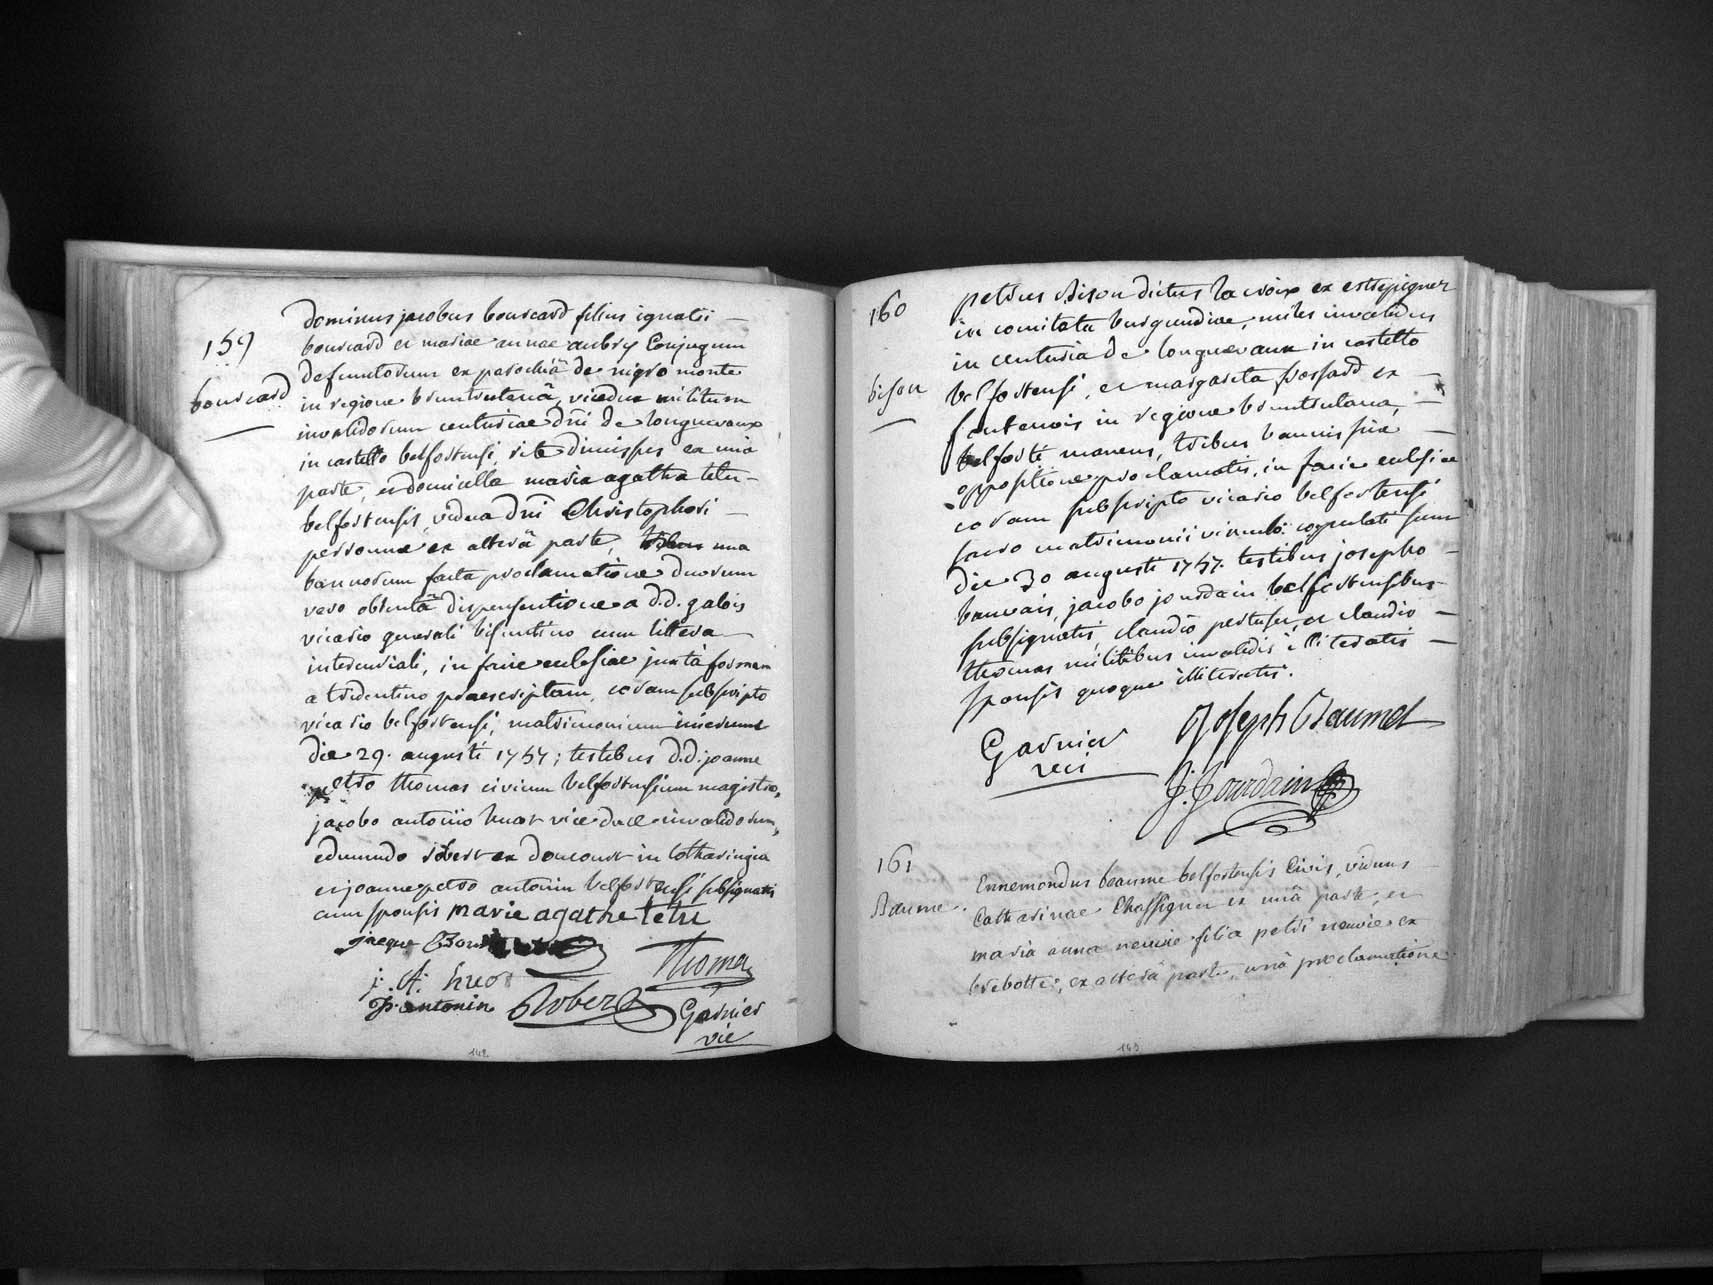 159
bourcard
dominus jacobus bourcard filius ignatii
bourcard et mariae annae aubry Conjugum
defunctorum ex parochiâ de nigro monte
in regione bruntrutanâ, vicedux militum
invalidorum centuriae dni de longuevaux
in castello belfortensi, rite dimissus ex unâ
parte, et domicella maria agatha tetu
belfortensis, vidua dni Christophori
personne ex alterâ parte, una
bannorum facta proclamatione duorum
vero obtentâ dispensatione a d.d. galois
vicario generali bisuntino cum littera
intercursiali, in facie ecclesiae juxtà formam
a tridentino praescriptam, coram subscripto
vicario belfortensi, matrimonium inierunt
die 29. augusti 1757; testibus d.d. joanne
petro thomas civium belfortensium magistro,
jacobo antonio huot vice duce invalidorum,
edmundo robert ex doucourt in lotharingia
et joanne petro antonin belfortensi subsignatis
cum sponsis marie agathe tetu
jacque Bour
Thomas
j. A. huot
P. antonin Robert Garnier
vic
142
160
bison
petrus Bison dictus la croix ex estrepigner
in comitatu burgundiae, miles invalidus
in centuria de longuevaux in castello
belfortensi, et margarita frossard ex
fontenois in regione bruntrutana,
belforti manens, tribus bannis sine
oppositione proclamatis, in facie ecclesiae
coram subscripto vicario belfortensi
sacro matrimonii vinculo copulati sunt
die 30 augusti 1757. testibus josepho
bauvais, jacobo jourdain belfortensibus
subsignatis, claudio pertusu, et claudio
thomas militibus invalidis illiteratis
sponsis quoque illiteratis.
Garnier
vic
Joseph Baumet
J. Jourdain
161
Baume
Ennemondus beaume belfortensis Civis, viduus
Catharinae Chassignet ex unâ parte, et
maria anna neuvie filia petri neuvie ex
brebotte, ex alterâ parte, unâ proclamatione
143